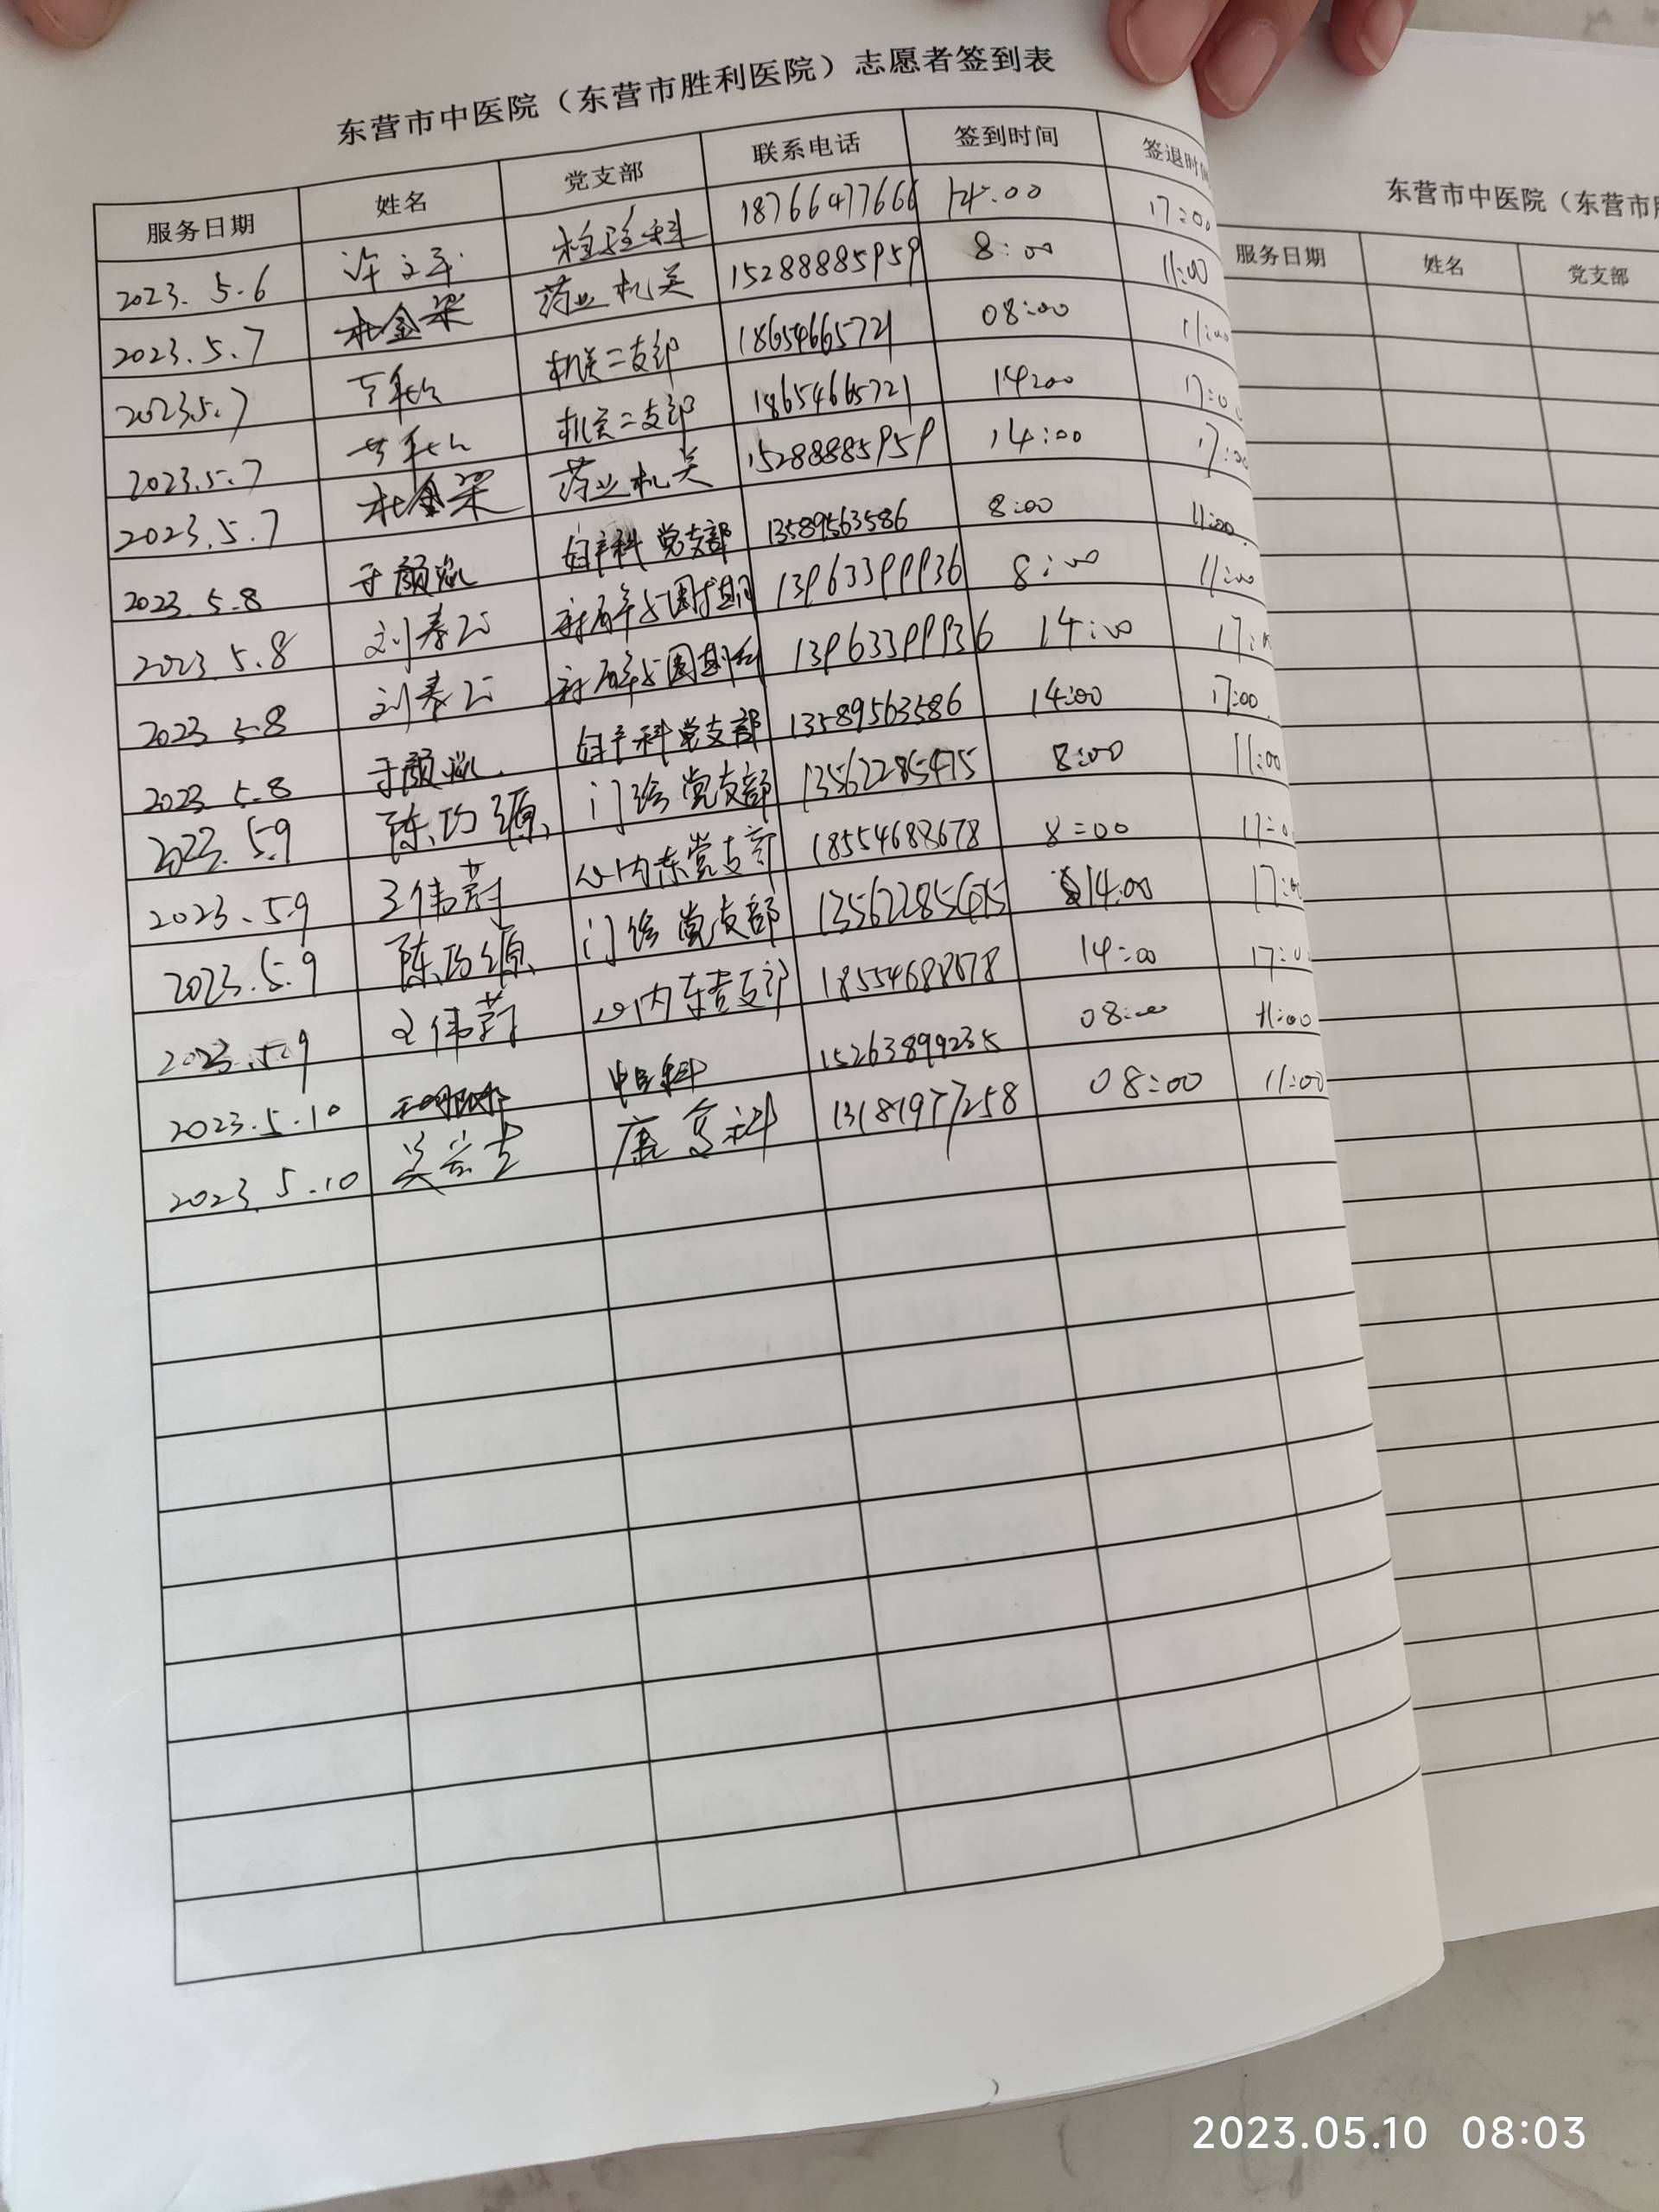 东营市中医院（东营市胜利医院）志愿者签到表
服务日期 姓名 党支部 联系电话 签到时间 签退时间
2023. 5.6 检验科 18766477666 14:00 17:00
2023.5.7 杜金梁 药业机关 15288885959 8:00 11:00
2023.5.7 机关二支部 18654665721 08:00 11:00
2023.5.7 机关二支部 18654665721 14:00 17:00
2023.5.7 杜金梁 药业机关 15288885959 14:00 17:00
2023.5.8 于颜 党支部 13589563586 8:00 11:00
2023.5.8 刘春 13963399936 8:00 11:00
2023 5.8 刘春 13963399936 14:00 17:00
2023 5.8 于颜 党支部 13589563586 14:00 17:00
2023.5.9 陈巧源 门诊党支部 13562285475 8:00 11:00
2023.5.9 王伟蔚 心内东党支部 18554688678 8:00 11:00
2023.5.9 陈巧源 门诊党支部 14:00 17:00
2023.5.9 王伟蔚 心内东党支部 18554688678 14:00 17:00
2023.5.10 中医科 15263899235 08:00 11:00
2023.5.10 康复科 13181977258 08:00 11:00
东营市中医院（东营市
服务日期 姓名 党支部
2023.05.10 08:03